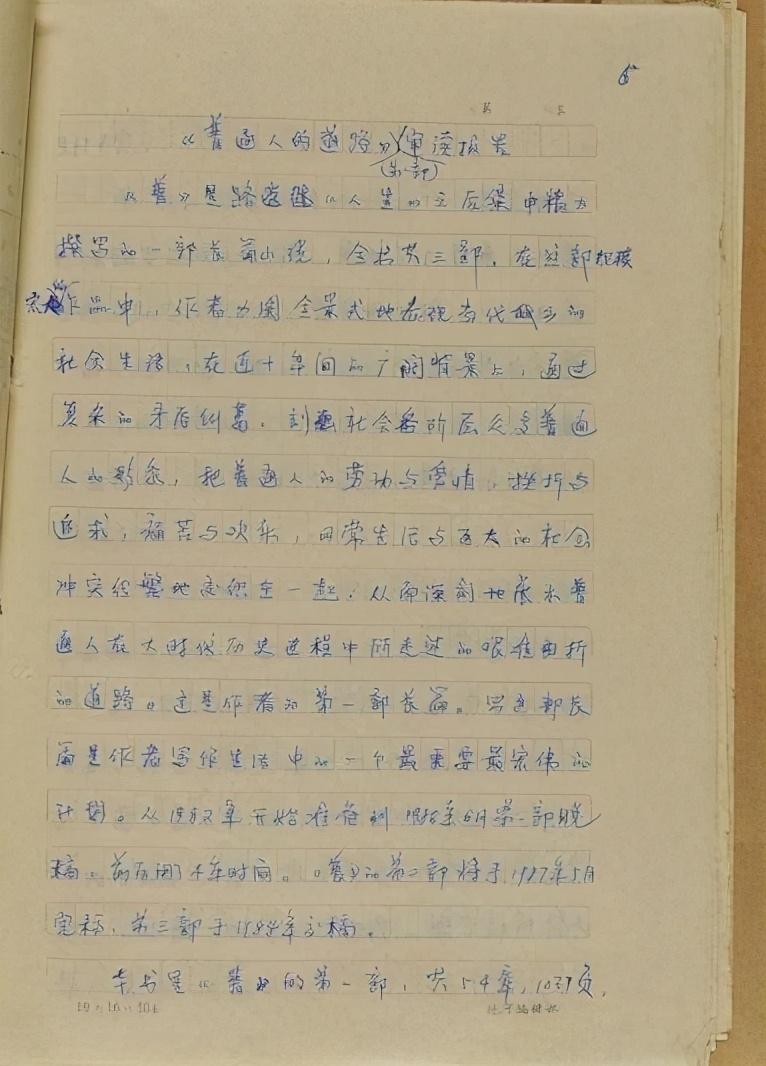 6
《普通人的道路》审读报告
(第一部)
《普》是路遥继《人生》的主反集中精力
撰写的一部长篇小说，全书共三部，在这部规模
宏大作品中，作者力图全景式地表现当代城乡的
社会生活，在近十年间的广阔背景上，通过
复杂的矛盾纠葛，刻画社会各阶层众多普通
人的形象，把普通人的劳动与爱情，挫折与
追求，痛苦与欢乐，日常生活与巨大的社会
冲突纷繁地交织在一起，从而深刻地展示普
通人在大时代历史进程中所走过的艰难曲折
的道路。这是作者的第一部长篇。写这部长
篇是作者写作生活中的一个最重要最宏伟的
计划。从年开始准备到6月第一部脱
稿。前后用了年时间。《普》的第二部将于1987年5月
完稿，第三部于1988年交稿。
本书是《普》的第一部，共54章，1039页，